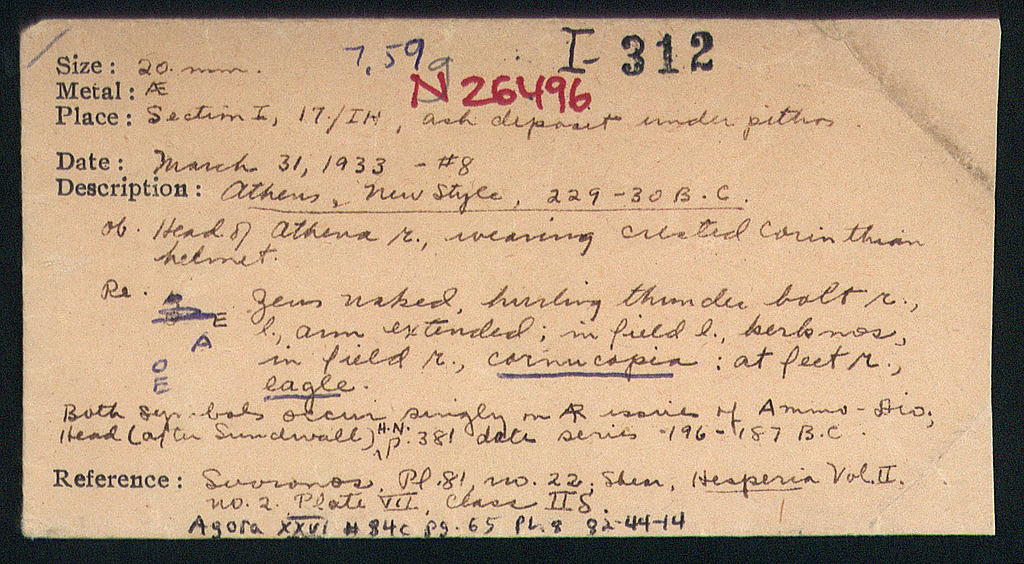 7,59 g I- 312
N 26496
Size: 20. mm.
Metal: Æ
Place: Section I, 17/IH, ash deposit under pithos.
Date: March 31, 1933 - #8
Description: Athens, New Style, 229-30 B.C.
ob. Head of Athena r., wearing crested Corinthian
helmet.
Re. Zeus naked, hurling thunder bolt r.,
E l, arm extended; in field l., kerknos,
A in field r., cornucopia: at feet r.,
O
E eagle.
Both symbols occur singly on AR issues of Ammo-Dio;
Head (after Sundwall) H.N. p. 381 date series 196-187 B.C.
Reference: Svoronos, Pl. 81, no. 22; Shear, Hesperia Vol. II.
no. 2. Plate VII, Class II S.
Agora XXVI #84c pg. 65 PL. 8 82-44-14